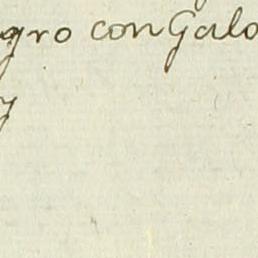 gro con Galo
y